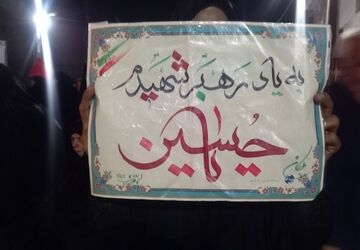 به یاد رهبر شهیدم
یا حسین